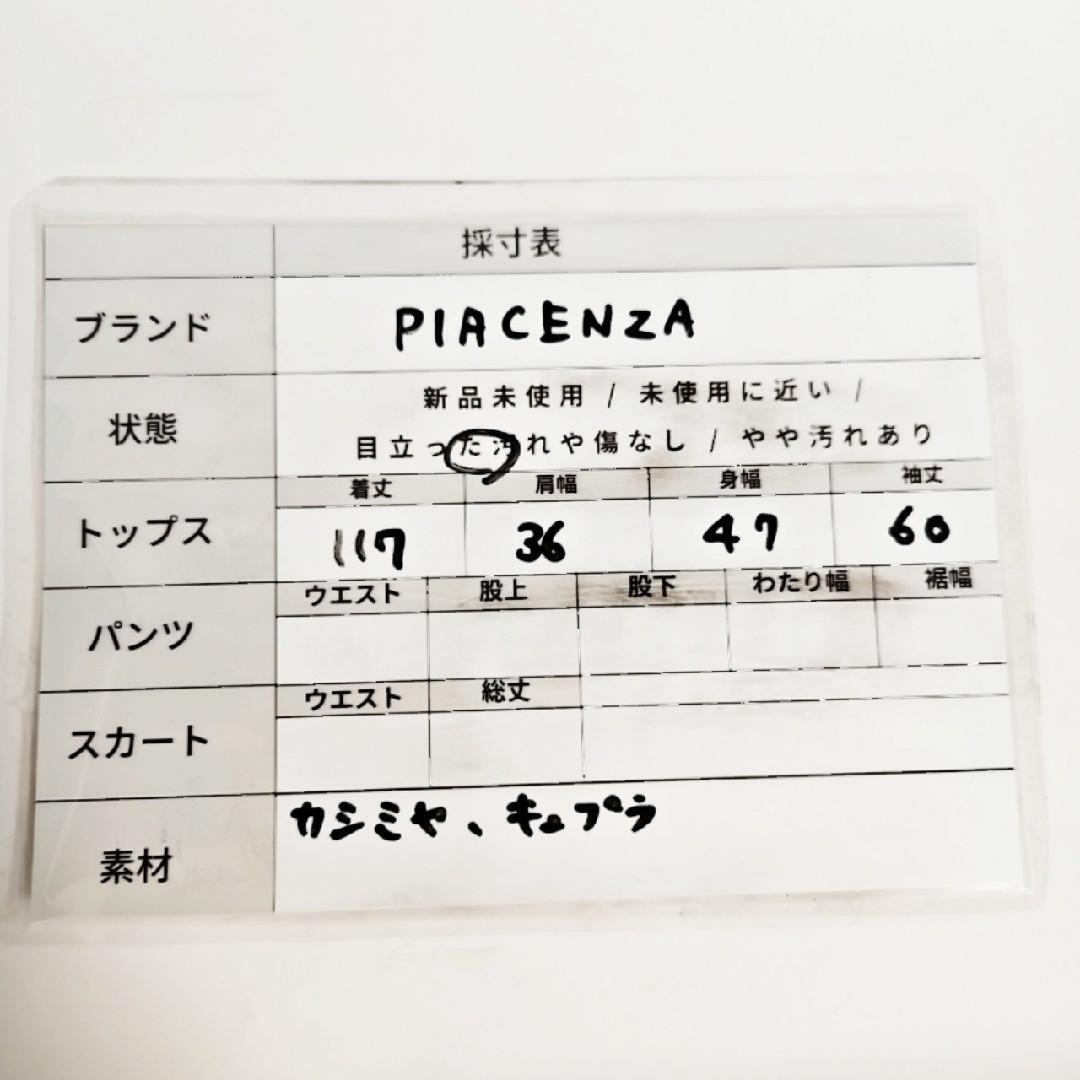 採寸表
ブランド PIACENZA
状態 新品未使用 / 未使用に近い /
目立った汚れや傷なし / やや汚れあり
着丈 肩幅 身幅 袖丈
トップス 117 36 47 60
ウエスト 股上 股下 わたり幅 裾幅
パンツ
ウエスト 総丈
スカート
素材 カシミヤ、キュプラ